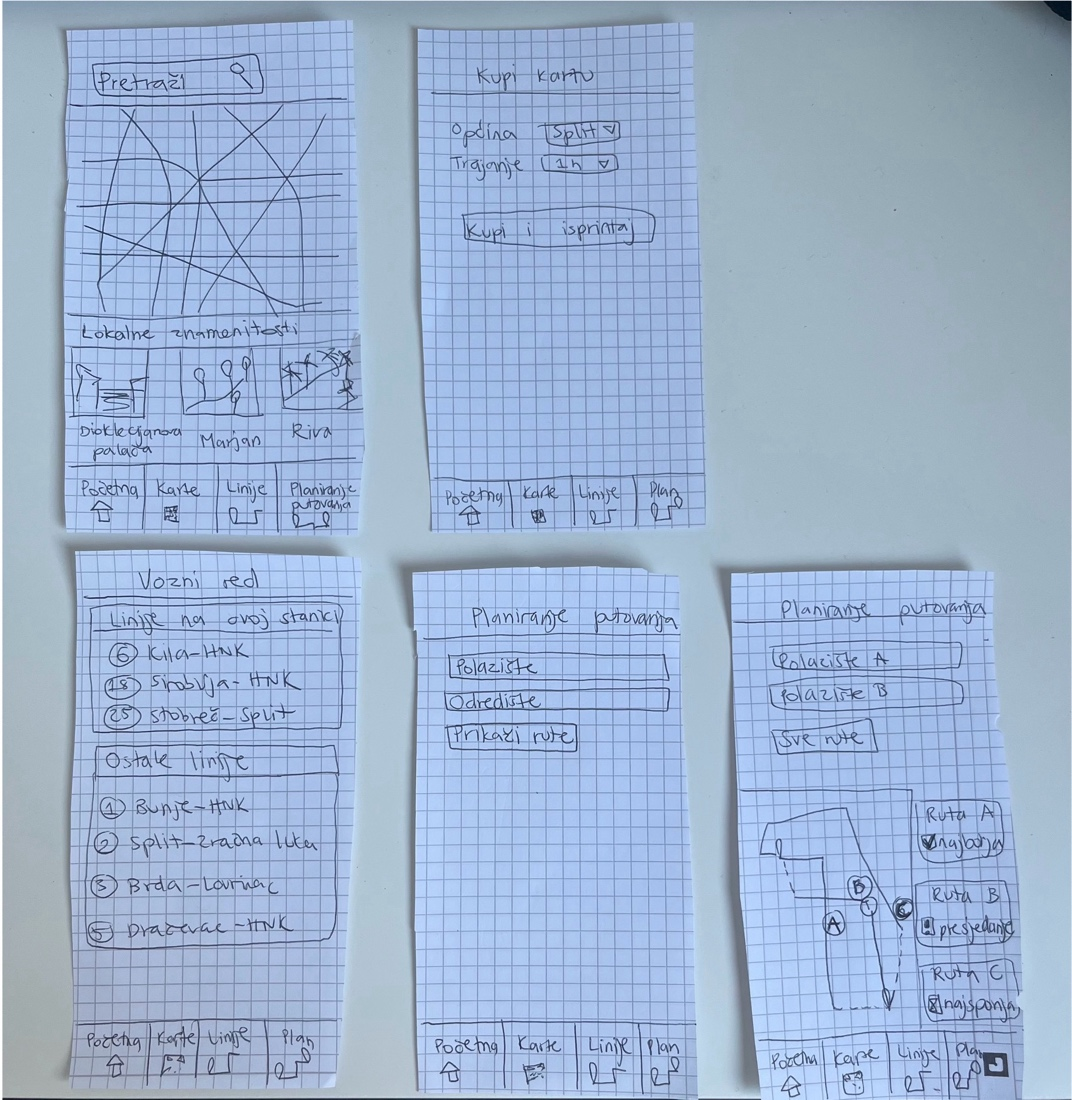 Pretraži
Lokalne znamenitosti
Dioklecijanova
palača
Marjan
Riva
Početna
Karte
Linije
Planiranje
putovanja
Kupi kartu
Općina
Split
Trajanje
1h
Kupi i isprintaj
Početna
Karte
Linije
Plan
Vozni red
Linije na ovoj stanici
6 Kila-HNK
18 Sirobuja-HNK
25 Stobreč-Split
Ostale linije
1 Bunje-HNK
2 Split-zračna luka
3 Brda-Lovrinac
5 Dračevac-HNK
Početna
Karte
Linije
Plan
Planiranje putovanja
Polazište
Odredište
Prikaži rute
Početna
Karte
Linije
Plan
Planiranje putovanja
Polazište A
Polazište B
Sve rute
A
B
C
Ruta A
najbolja
Ruta B
presjedanje
Ruta C
najsporija
Početna
Karte
Linije
Plan